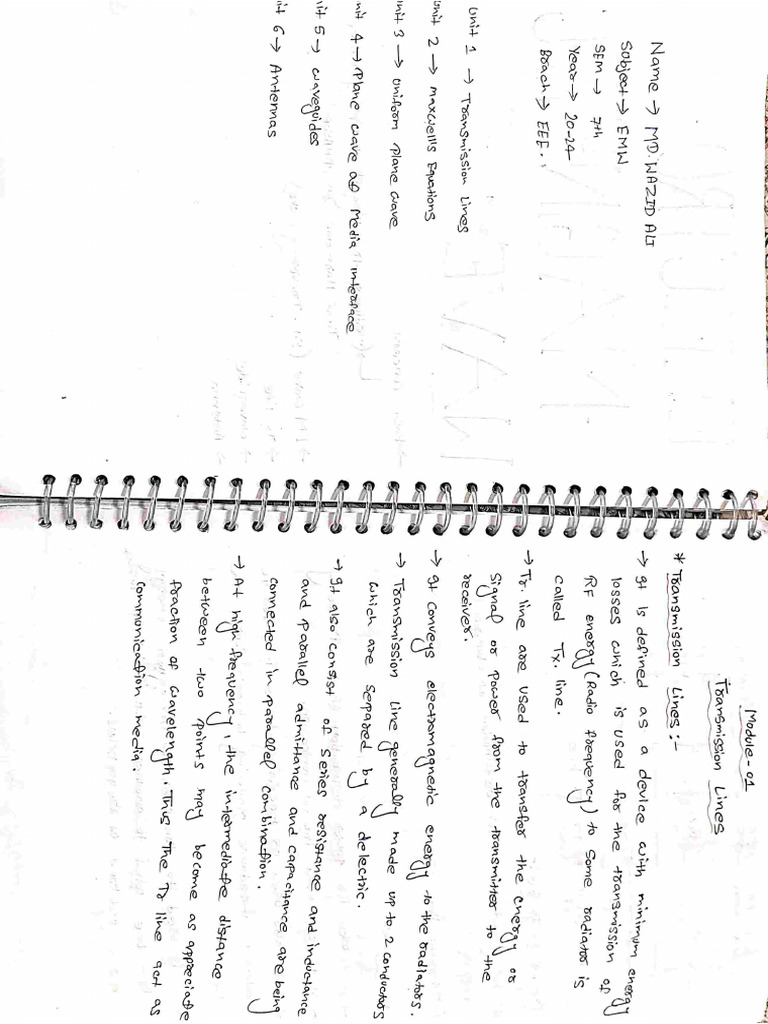 Name → MD. WAZID ALI
Subject → EMW
SEM → 7th
Year → 20-24
Brach → EEE.
Unit 1 → Transmission Lines
Unit 2 → maxwells Equations
unit 3 → uniform plane wave
nit 4 → Plane wave at Media interface
nit 5 → waveguides
it 6 → Antennas
Module-01
Transmission Lines
* Transmission Lines :-
→ It is defined as a device with minimum energy
losses which is used for the transmission of
RF energy (Radio frequency) to some radiator is
called Tx. line.
→ Tr. line are used to transfer the energy or
signal or power from the transmitter to the
receiver.
→ It conveys electromagnetic energy to the radiators.
→ Transmission line generally made up to 2 conductors
which are separed by a delectric.
→ It also consist of series resistance and inductance
and parallel admittance and capacitance are being
connected in parallel combination.
→ At high frequency, the intermediate distance
between two points may become as appreciate
fraction of wavelength. Thus The Tr line act as
communication media.